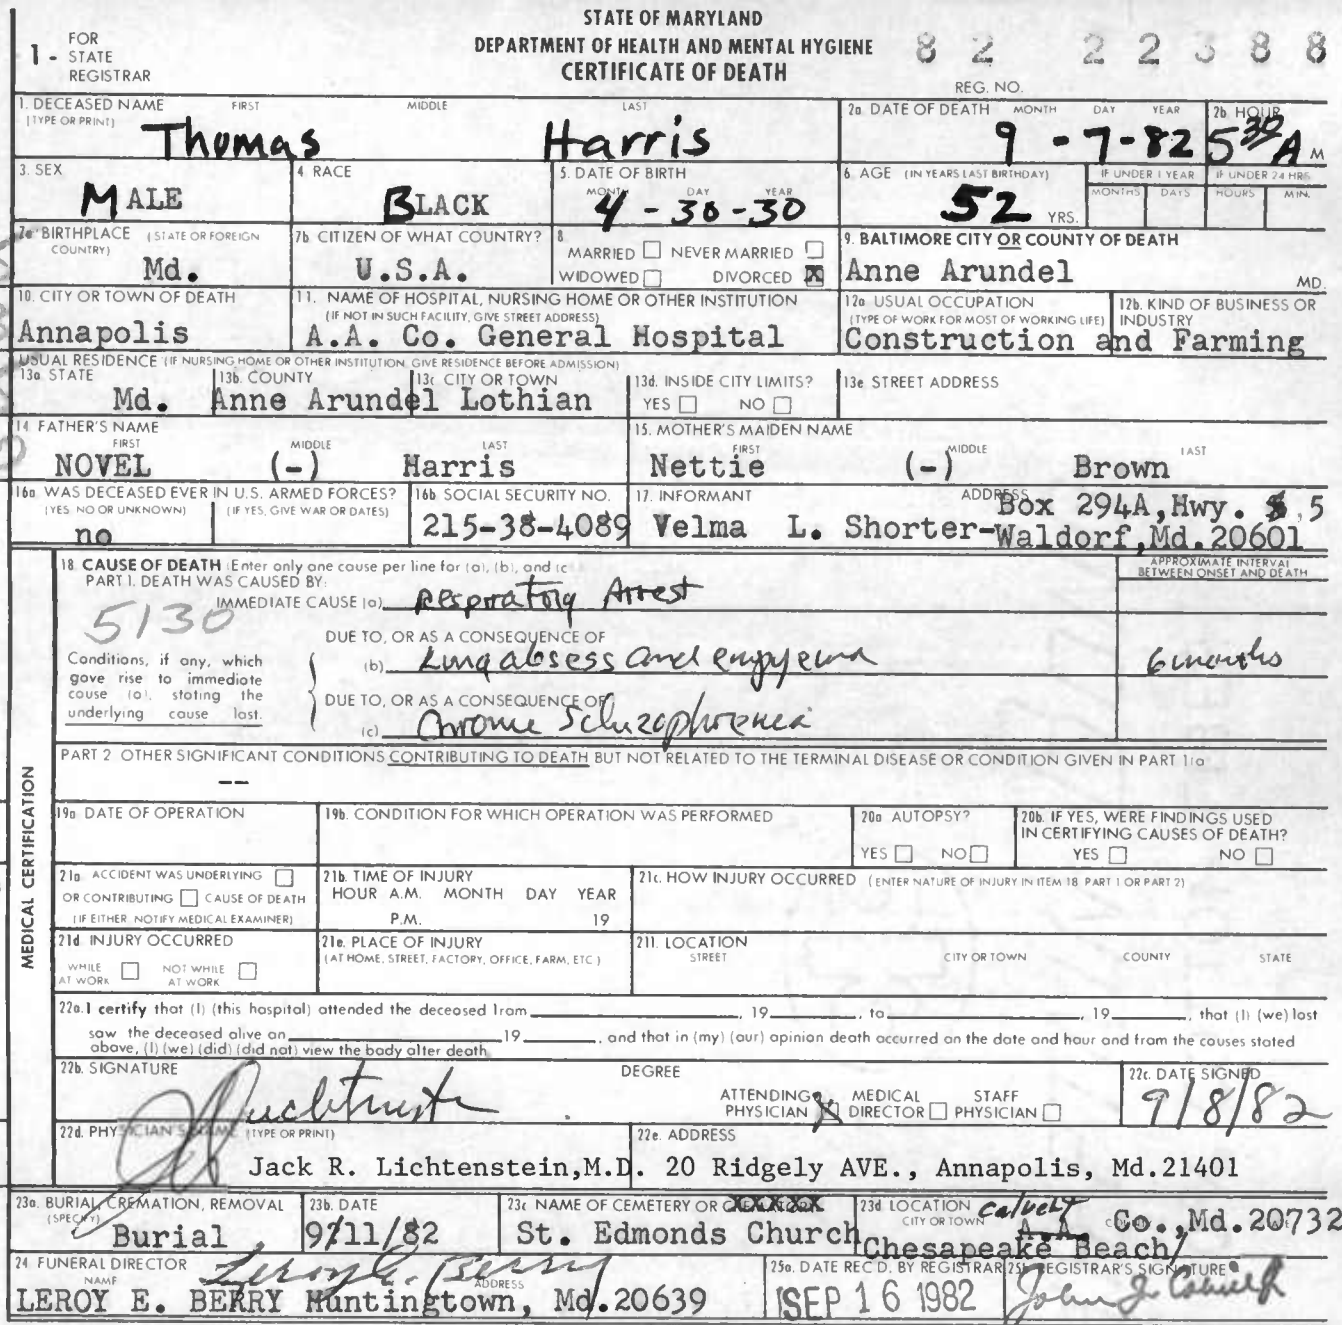 STATE OF MARYLAND
DEPARTMENT OF HEALTH AND MENTAL HYGIENE
CERTIFICATE OF DEATH
1 - FOR STATE REGISTRAR
82 22388
REG. NO.
1. DECEASED NAME (TYPE OR PRINT) FIRST MIDDLE LAST
Thomas Harris
2a. DATE OF DEATH MONTH DAY YEAR
9 - 7 - 82
2b. HOUR
5 30 A M
3. SEX
MALE
4. RACE
BLACK
5. DATE OF BIRTH MONTH DAY YEAR
4 - 30 - 30
6. AGE (IN YEARS LAST BIRTHDAY) IF UNDER 1 YEAR MONTHS DAYS IF UNDER 24 HRS HOURS MIN.
52 YRS.
7a. BIRTHPLACE (STATE OR FOREIGN COUNTRY)
Md.
7b. CITIZEN OF WHAT COUNTRY?
U.S.A.
8. MARRIED NEVER MARRIED
WIDOWED DIVORCED X
9. BALTIMORE CITY OR COUNTY OF DEATH
Anne Arundel MD.
10. CITY OR TOWN OF DEATH
Annapolis
11. NAME OF HOSPITAL, NURSING HOME OR OTHER INSTITUTION
(IF NOT IN SUCH FACILITY, GIVE STREET ADDRESS)
A.A. Co. General Hospital
12a. USUAL OCCUPATION (TYPE OF WORK FOR MOST OF WORKING LIFE)
12b. KIND OF BUSINESS OR INDUSTRY
Construction and Farming
USUAL RESIDENCE (IF NURSING HOME OR OTHER INSTITUTION, GIVE RESIDENCE BEFORE ADMISSION)
13a. STATE 13b. COUNTY 13c. CITY OR TOWN 13d. INSIDE CITY LIMITS? 13e. STREET ADDRESS
Md. Anne Arundel Lothian YES NO
14. FATHER'S NAME FIRST MIDDLE LAST
NOVEL (-) Harris
15. MOTHER'S MAIDEN NAME FIRST MIDDLE LAST
Nettie (-) Brown
16a. WAS DECEASED EVER IN U.S. ARMED FORCES?
(YES, NO OR UNKNOWN) (IF YES, GIVE WAR OR DATES)
no
16b. SOCIAL SECURITY NO.
215-38-4089
17. INFORMANT ADDRESS
Box 294A, Hwy. 5
Velma L. Shorter-Waldorf, Md. 20601
18. CAUSE OF DEATH (Enter only one cause per line for (a), (b), and (c
APPROXIMATE INTERVAL BETWEEN ONSET AND DEATH
PART I. DEATH WAS CAUSED BY:
IMMEDIATE CAUSE (a) Respiratory Arrest
5130
DUE TO, OR AS A CONSEQUENCE OF
(b) Lung absess and empyema 6 months
Conditions, if any, which gave rise to immediate cause (a), stating the underlying cause last.
DUE TO, OR AS A CONSEQUENCE OF
(c) Chronic Schizophrenia
PART 2 OTHER SIGNIFICANT CONDITIONS CONTRIBUTING TO DEATH BUT NOT RELATED TO THE TERMINAL DISEASE OR CONDITION GIVEN IN PART 1(a
--
MEDICAL CERTIFICATION
19a. DATE OF OPERATION
19b. CONDITION FOR WHICH OPERATION WAS PERFORMED
20a. AUTOPSY?
YES NO
20b. IF YES, WERE FINDINGS USED IN CERTIFYING CAUSES OF DEATH?
YES NO
21a. ACCIDENT WAS UNDERLYING
OR CONTRIBUTING CAUSE OF DEATH
(IF EITHER, NOTIFY MEDICAL EXAMINER)
21b. TIME OF INJURY
HOUR A.M. MONTH DAY YEAR
P.M. 19
21c. HOW INJURY OCCURRED (ENTER NATURE OF INJURY IN ITEM 18 PART 1 OR PART 2)
21d. INJURY OCCURRED
WHILE AT WORK NOT WHILE AT WORK
21e. PLACE OF INJURY
(AT HOME, STREET, FACTORY, OFFICE, FARM, ETC.)
21f. LOCATION STREET CITY OR TOWN COUNTY STATE
22a. I certify that (I) (this hospital) attended the deceased from , 19 , to , 19 , that (I) (we) last
saw the deceased alive on 19 , and that in (my) (our) opinion death occurred on the date and hour and from the causes stated
above, (I) (we) (did) (did not) view the body after death.
22b. SIGNATURE DEGREE
ATTENDING PHYSICIAN X MEDICAL DIRECTOR STAFF PHYSICIAN
22c. DATE SIGNED
9/8/82
22d. PHYSICIAN'S NAME (TYPE OR PRINT)
Jack R. Lichtenstein, M.D.
22e. ADDRESS
20 Ridgely AVE., Annapolis, Md. 21401
23a. BURIAL, CREMATION, REMOVAL (SPECIFY)
Burial
23b. DATE
9/11/82
23c. NAME OF CEMETERY OR
St. Edmonds Church
23d. LOCATION CITY OR TOWN
Calvert
A.A. Co., Md. 20732
Chesapeake Beach
24. FUNERAL DIRECTOR NAME ADDRESS
Leroy E. Berry
LEROY E. BERRY Huntingtown, Md. 20639
25a. DATE REC'D. BY REGISTRAR
SEP 16 1982
25b. REGISTRAR'S SIGNATURE
John J.